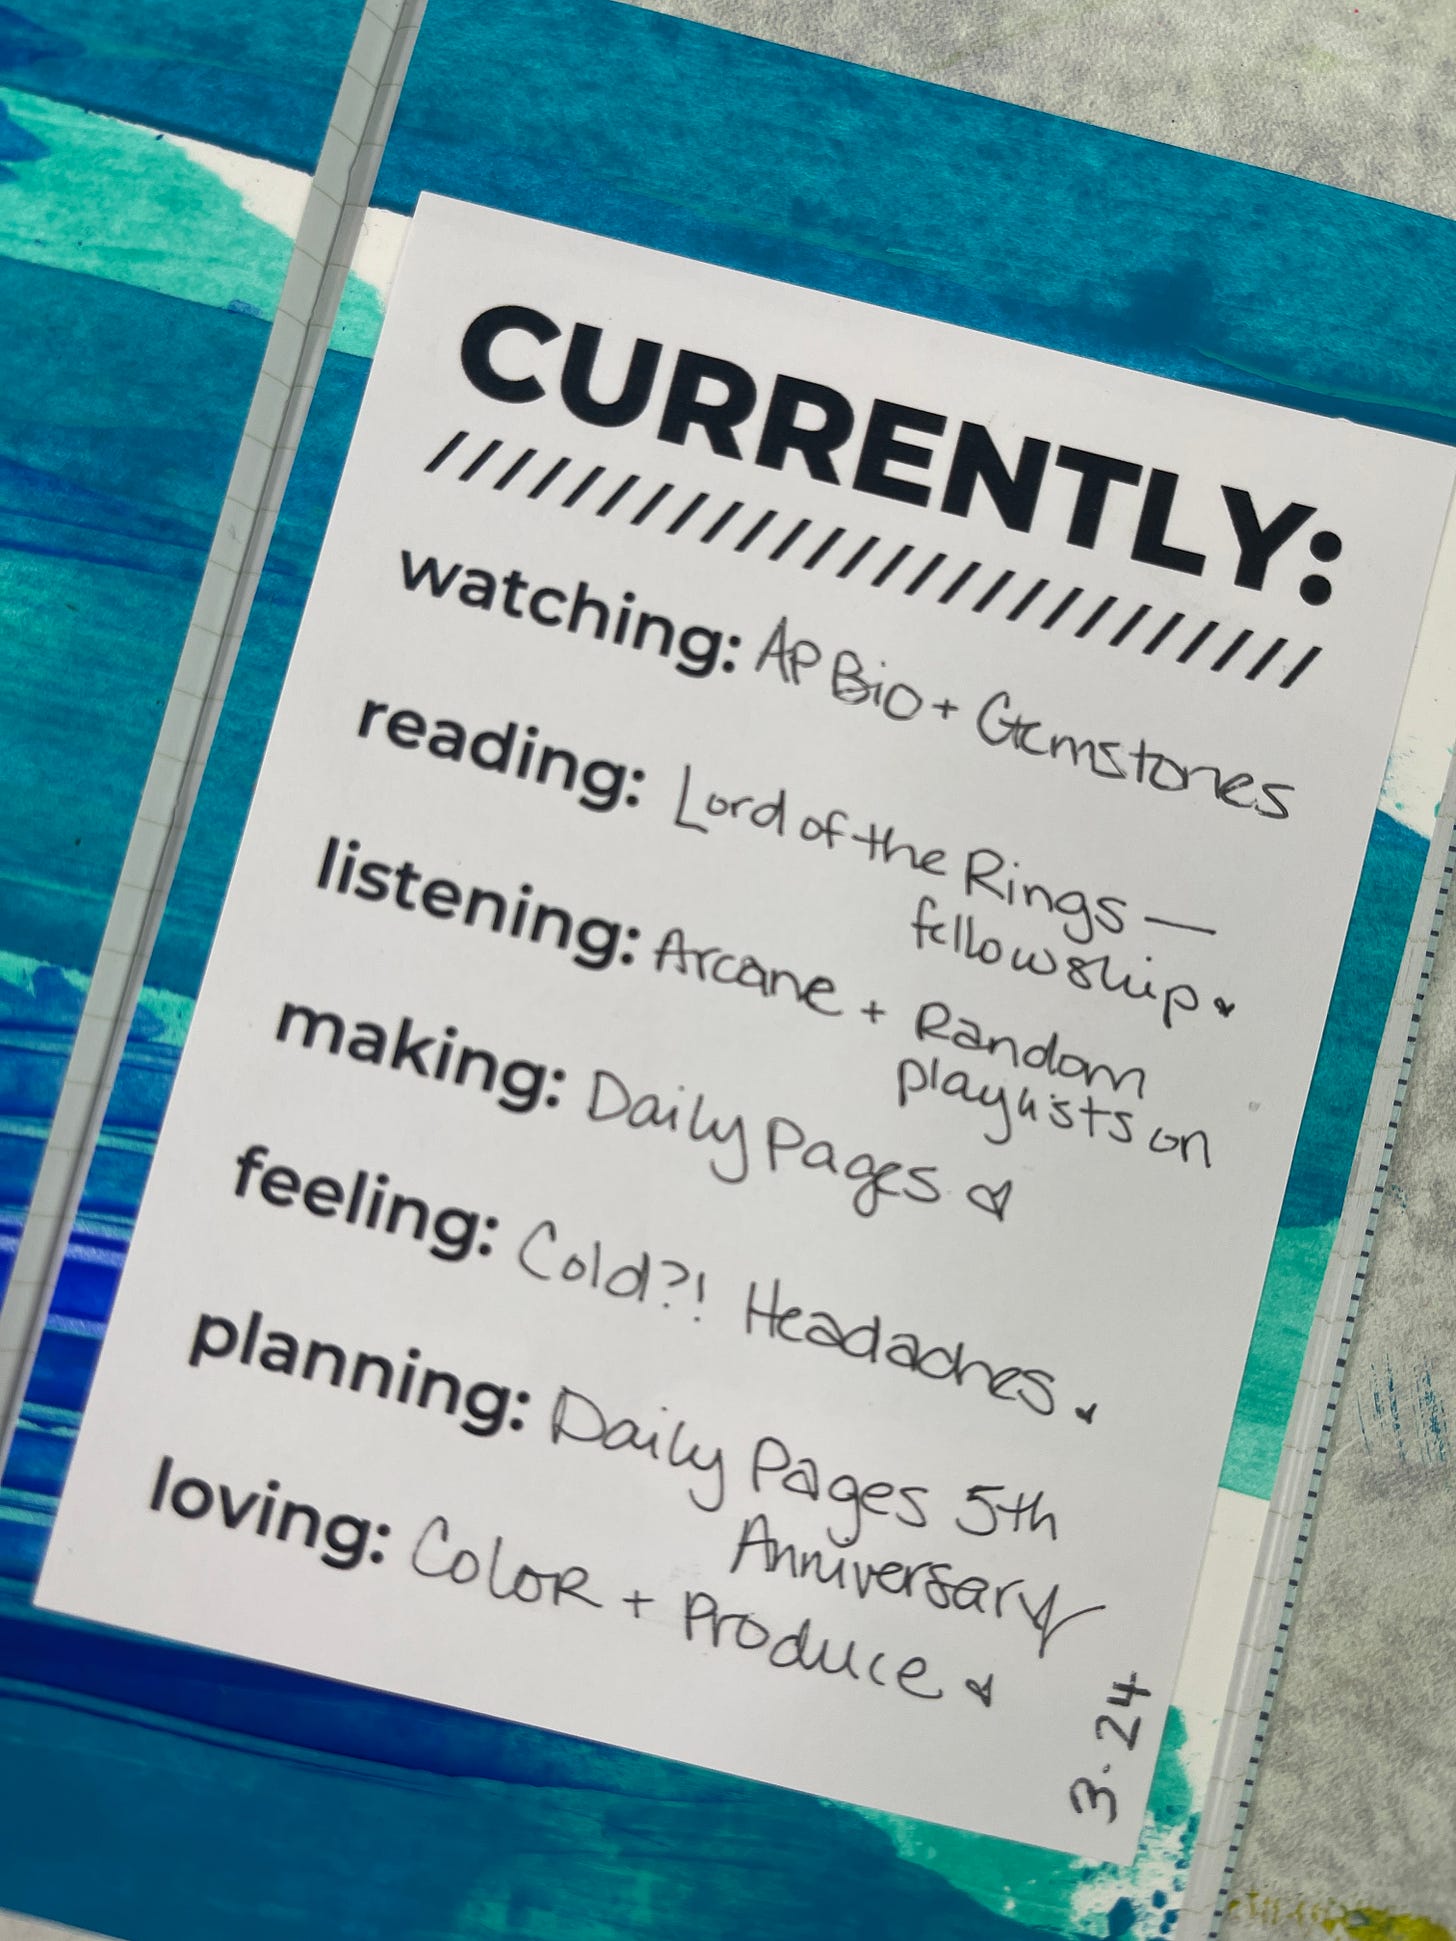 CURRENTLY:
////////////////////////
watching: AP Bio + Gemstones
reading: Lord of the Rings —
fellowship
listening: Arcane + Random
playlists on
making: Daily Pages
feeling: Cold?! Headaches.
planning: Daily Pages 5th
Anniversary
loving: Color + Produce
3.24